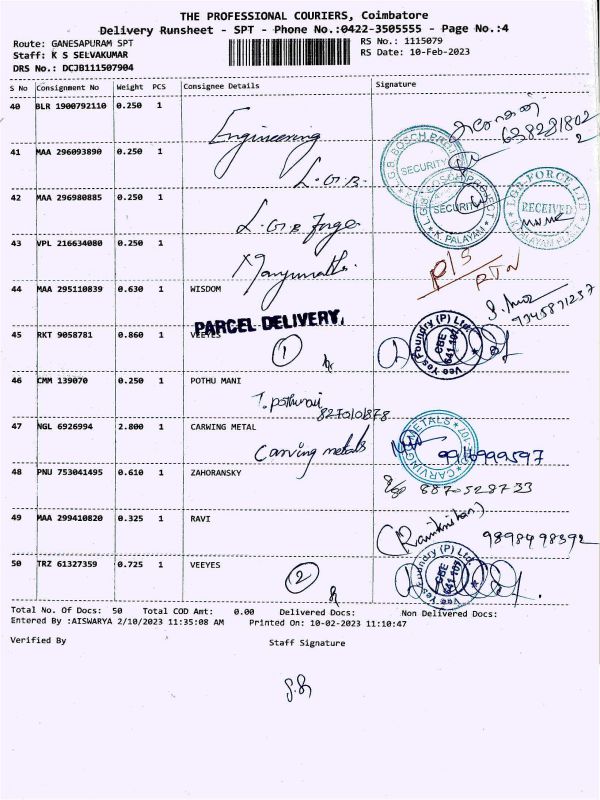 THE PROFESSIONAL COURIERS, Coimbatore
Delivery Runsheet - SPT - Phone No.:0422-3505555 - Page No.:4
Route: GANESAPURAM SPT
RS No.: 1115079
Staff: K S SELVAKUMAR
RS Date: 10-Feb-2023
DRS No.: DCJB111507904
S No Consignment No Weight PCS Consignee Details Signature
40 BLR 1900792110 0.250 1
Engineering
41 MAA 296093890 0.250 1
L.G.B.
SECURITY
42 MAA 296980885 0.250 1
L.G.B Forge
SECURITY
K. PALAYAM
LGB FORGE LTD
RECEIVED
43 VPL 216634080 0.250 1
Manjunath
P/S
RTN
44 MAA 295110839 0.630 1 WISDOM
9345871237
PARCEL DELIVERY.
45 RKT 9058781 0.860 1 VEEYES
1
Vee Yes Foundry (P) Ltd.
CBE
641 107
46 CMM 139070 0.250 1 POTHU MANI
T. pothu
47 NGL 6926994 2.800 1 CARWING METAL
Carving metals
CARVING METALS
48 PNU 753041495 0.610 1 ZAHORANSKY
8870528733
49 MAA 299410820 0.325 1 RAVI
9898498392
50 TRZ 61327359 0.725 1 VEEYES
2
Vee Yes Foundry (P) Ltd.
CBE
641 107
Total No. Of Docs: 50 Total COD Amt: 0.00 Delivered Docs: Non Delivered Docs:
Entered By :AISWARYA 2/10/2023 11:35:08 AM Printed On: 10-02-2023 11:10:47
Verified By Staff Signature